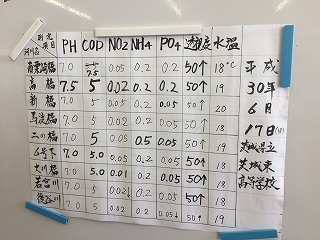 測定項目 PH COD NO2 NH4 PO4 透視度 水温
河川名
7.0 7.5 0.05 0.2 0.2 50↑ 18℃
高橋 7.5 5 0.02 0.2 0.2 50↑ 19
新橋 7.0 5 0.05 0.2 0.05 50↑ 20
7.0 5 0.02 0.2 0.2 50↑ 18
二の橋 7.0 5 0.05 0.5 0.05 50↑ 18
6号下 7.0 5.0 0.05 0.2 0.05 50↑ 18
大川橋 7.0 5.0 0.01 0.2 0.2 50↑ 18
若宮川 7.0 5 0.02↓ 0.2 0.05 50↑ 18
7.0 5 0.02 0.2 0.05↓ 50↑ 19
平成
30年
6月
17日(日)
茨城県立
茨城東
高等学校